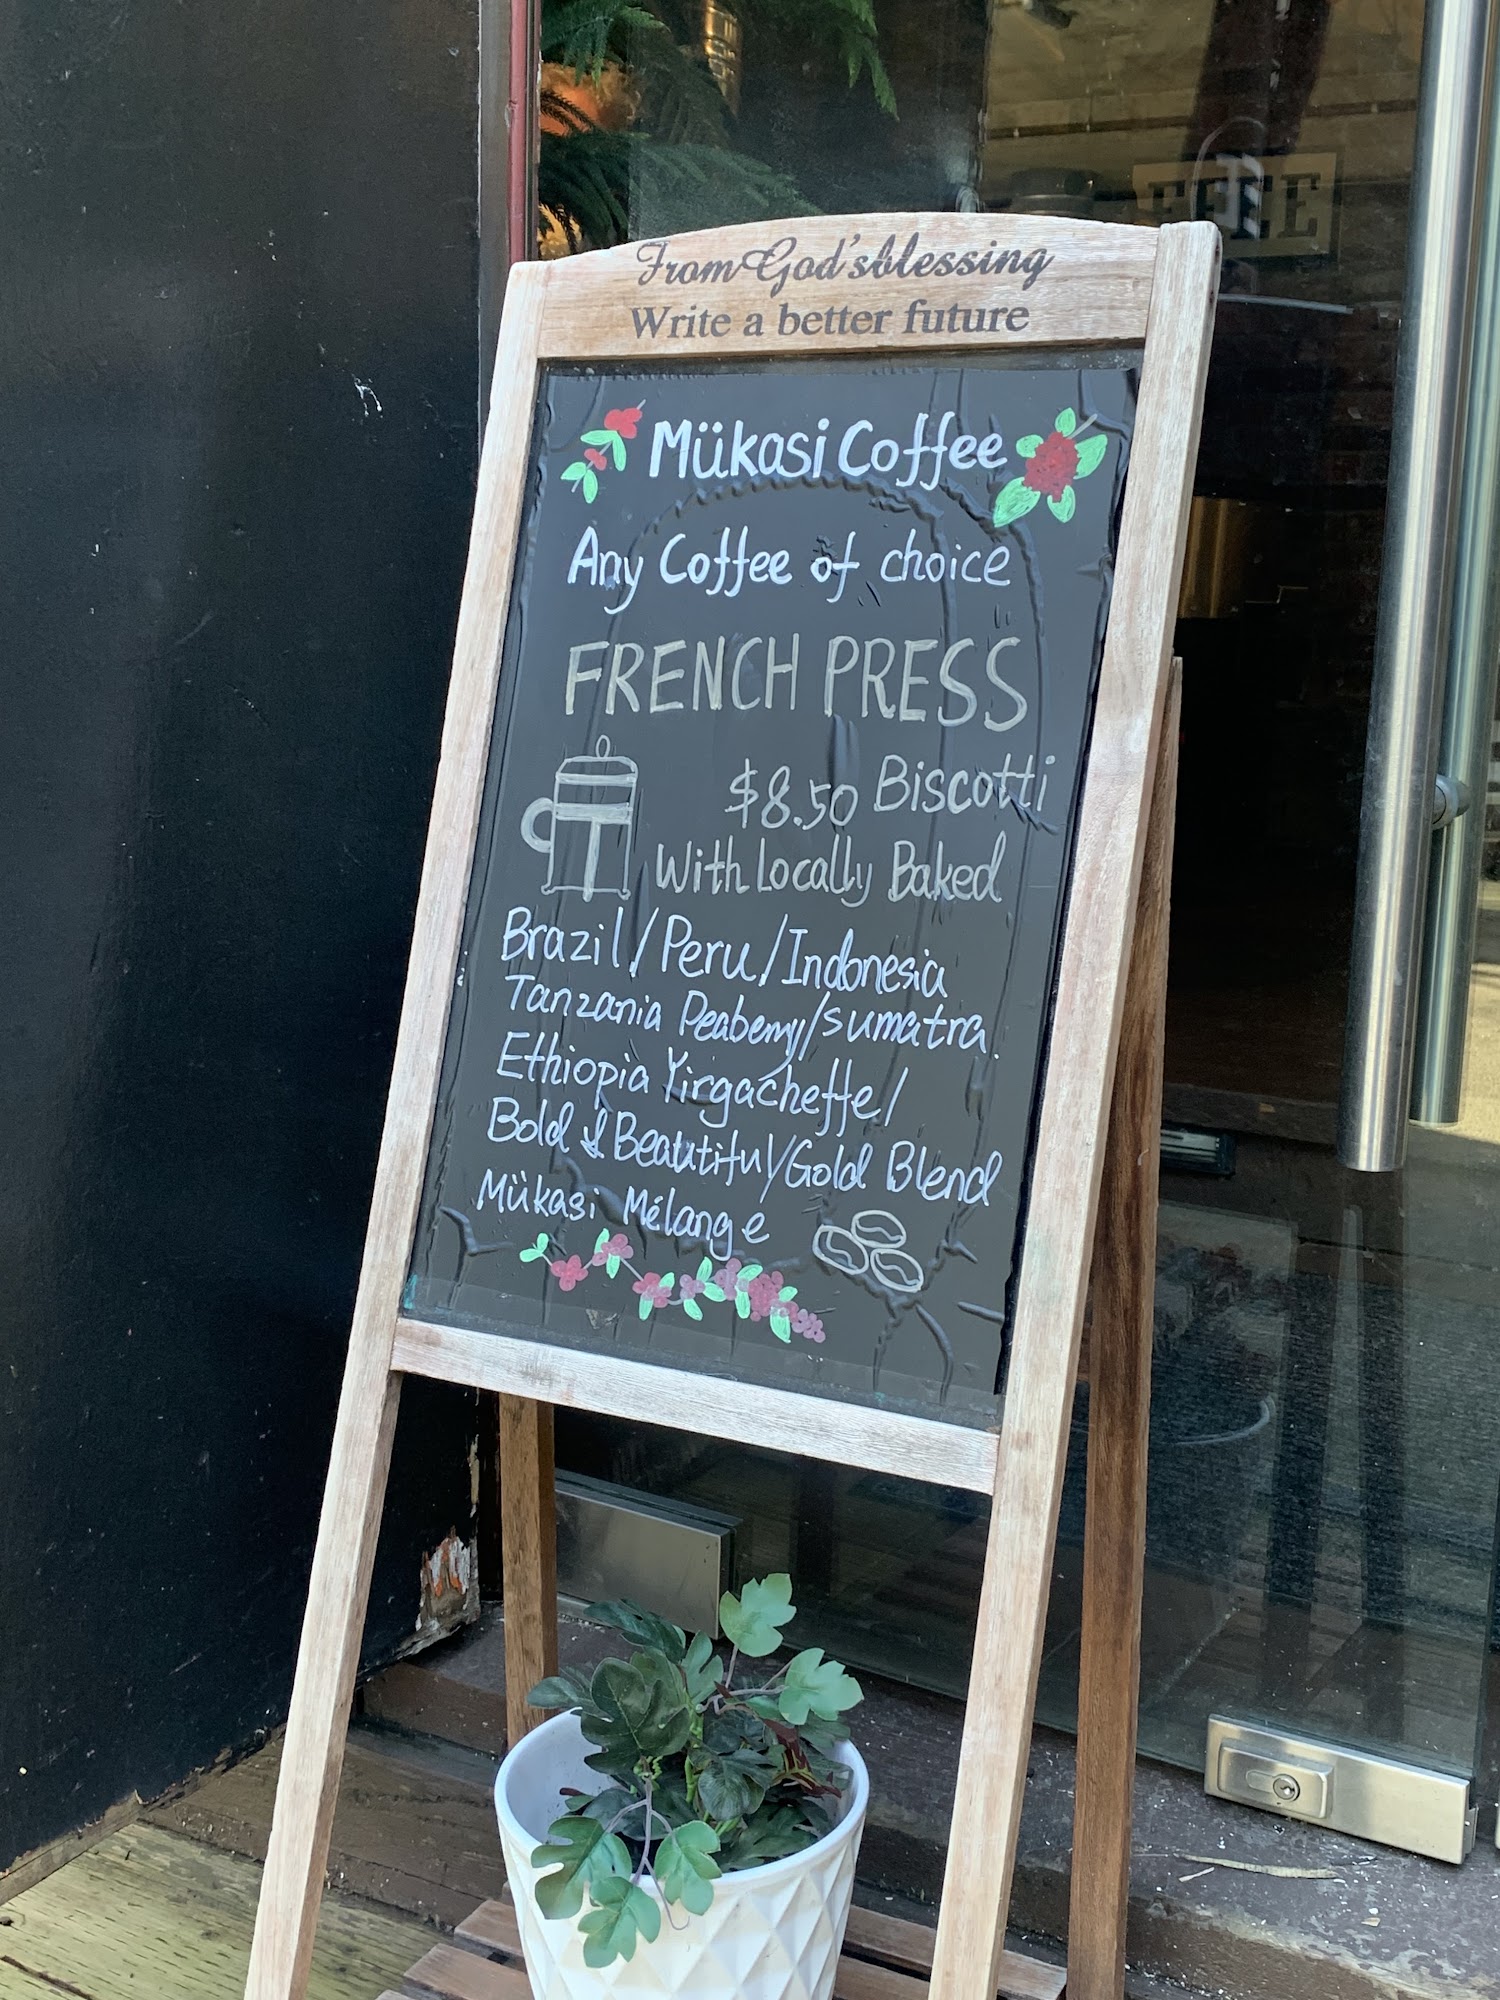 From God'sblessing
Write a better future
Mükasi Coffee
Any Coffee of choice
FRENCH PRESS
$8.50 Biscotti
With Locally Baked
Brazil/Peru/Indonesia
Tanzania Peaberry/Sumatra.
Ethiopia Yirgacheffe/
Bold & Beautiful/Gold Blend
Mükasi Mélange